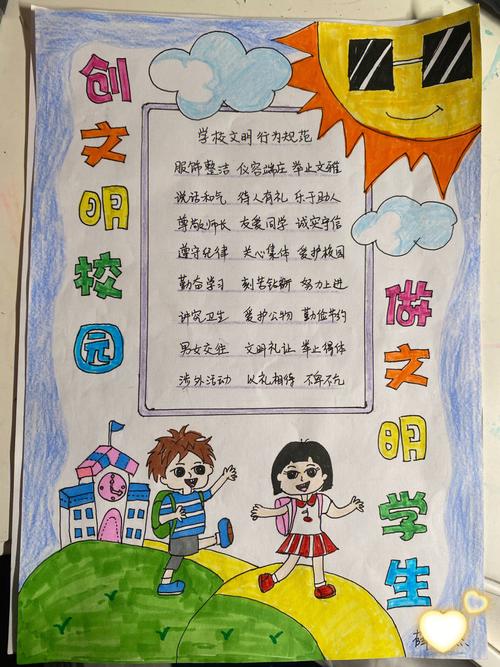 创文明校园
学校文明行为规范
服饰整洁 仪容端庄 举止文雅
说话和气 待人有礼 乐于助人
尊敬师长 友爱同学 诚实守信
遵守纪律 关心集体 爱护校园
勤奋学习 刻苦钻研 努力上进
讲究卫生 爱护公物 勤俭节约
男女交往 文明礼让 举止得体
涉外活动 以礼相待 不卑不亢
做文明学生